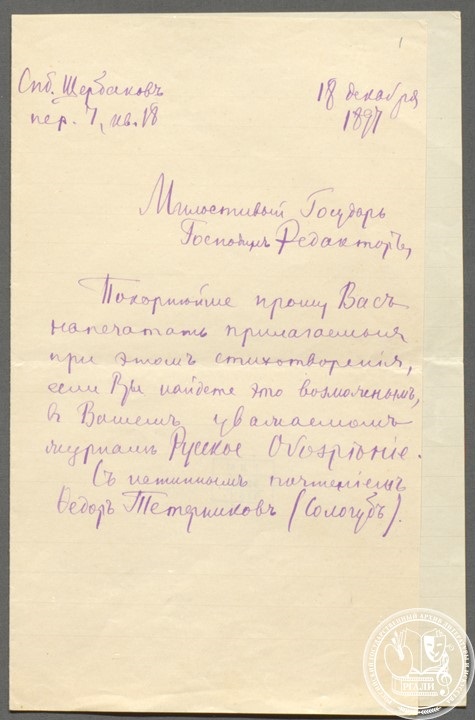 1
Спб. Щербаковъ
пер. 7, кв. 18
18 декабря
1897
Милостивый Государь
Господинъ Редакторъ,
Покорнѣйше прошу Васъ
напечатать прилагаемыя
при этомъ стихотворенія,
если Вы найдете это возможнымъ,
въ Вашемъ уважаемомъ
журналѣ Русское Обозрѣніе.
Съ истиннымъ почтеніемъ
Ѳедоръ Тетерниковъ (Сологубъ).
РГАЛИ